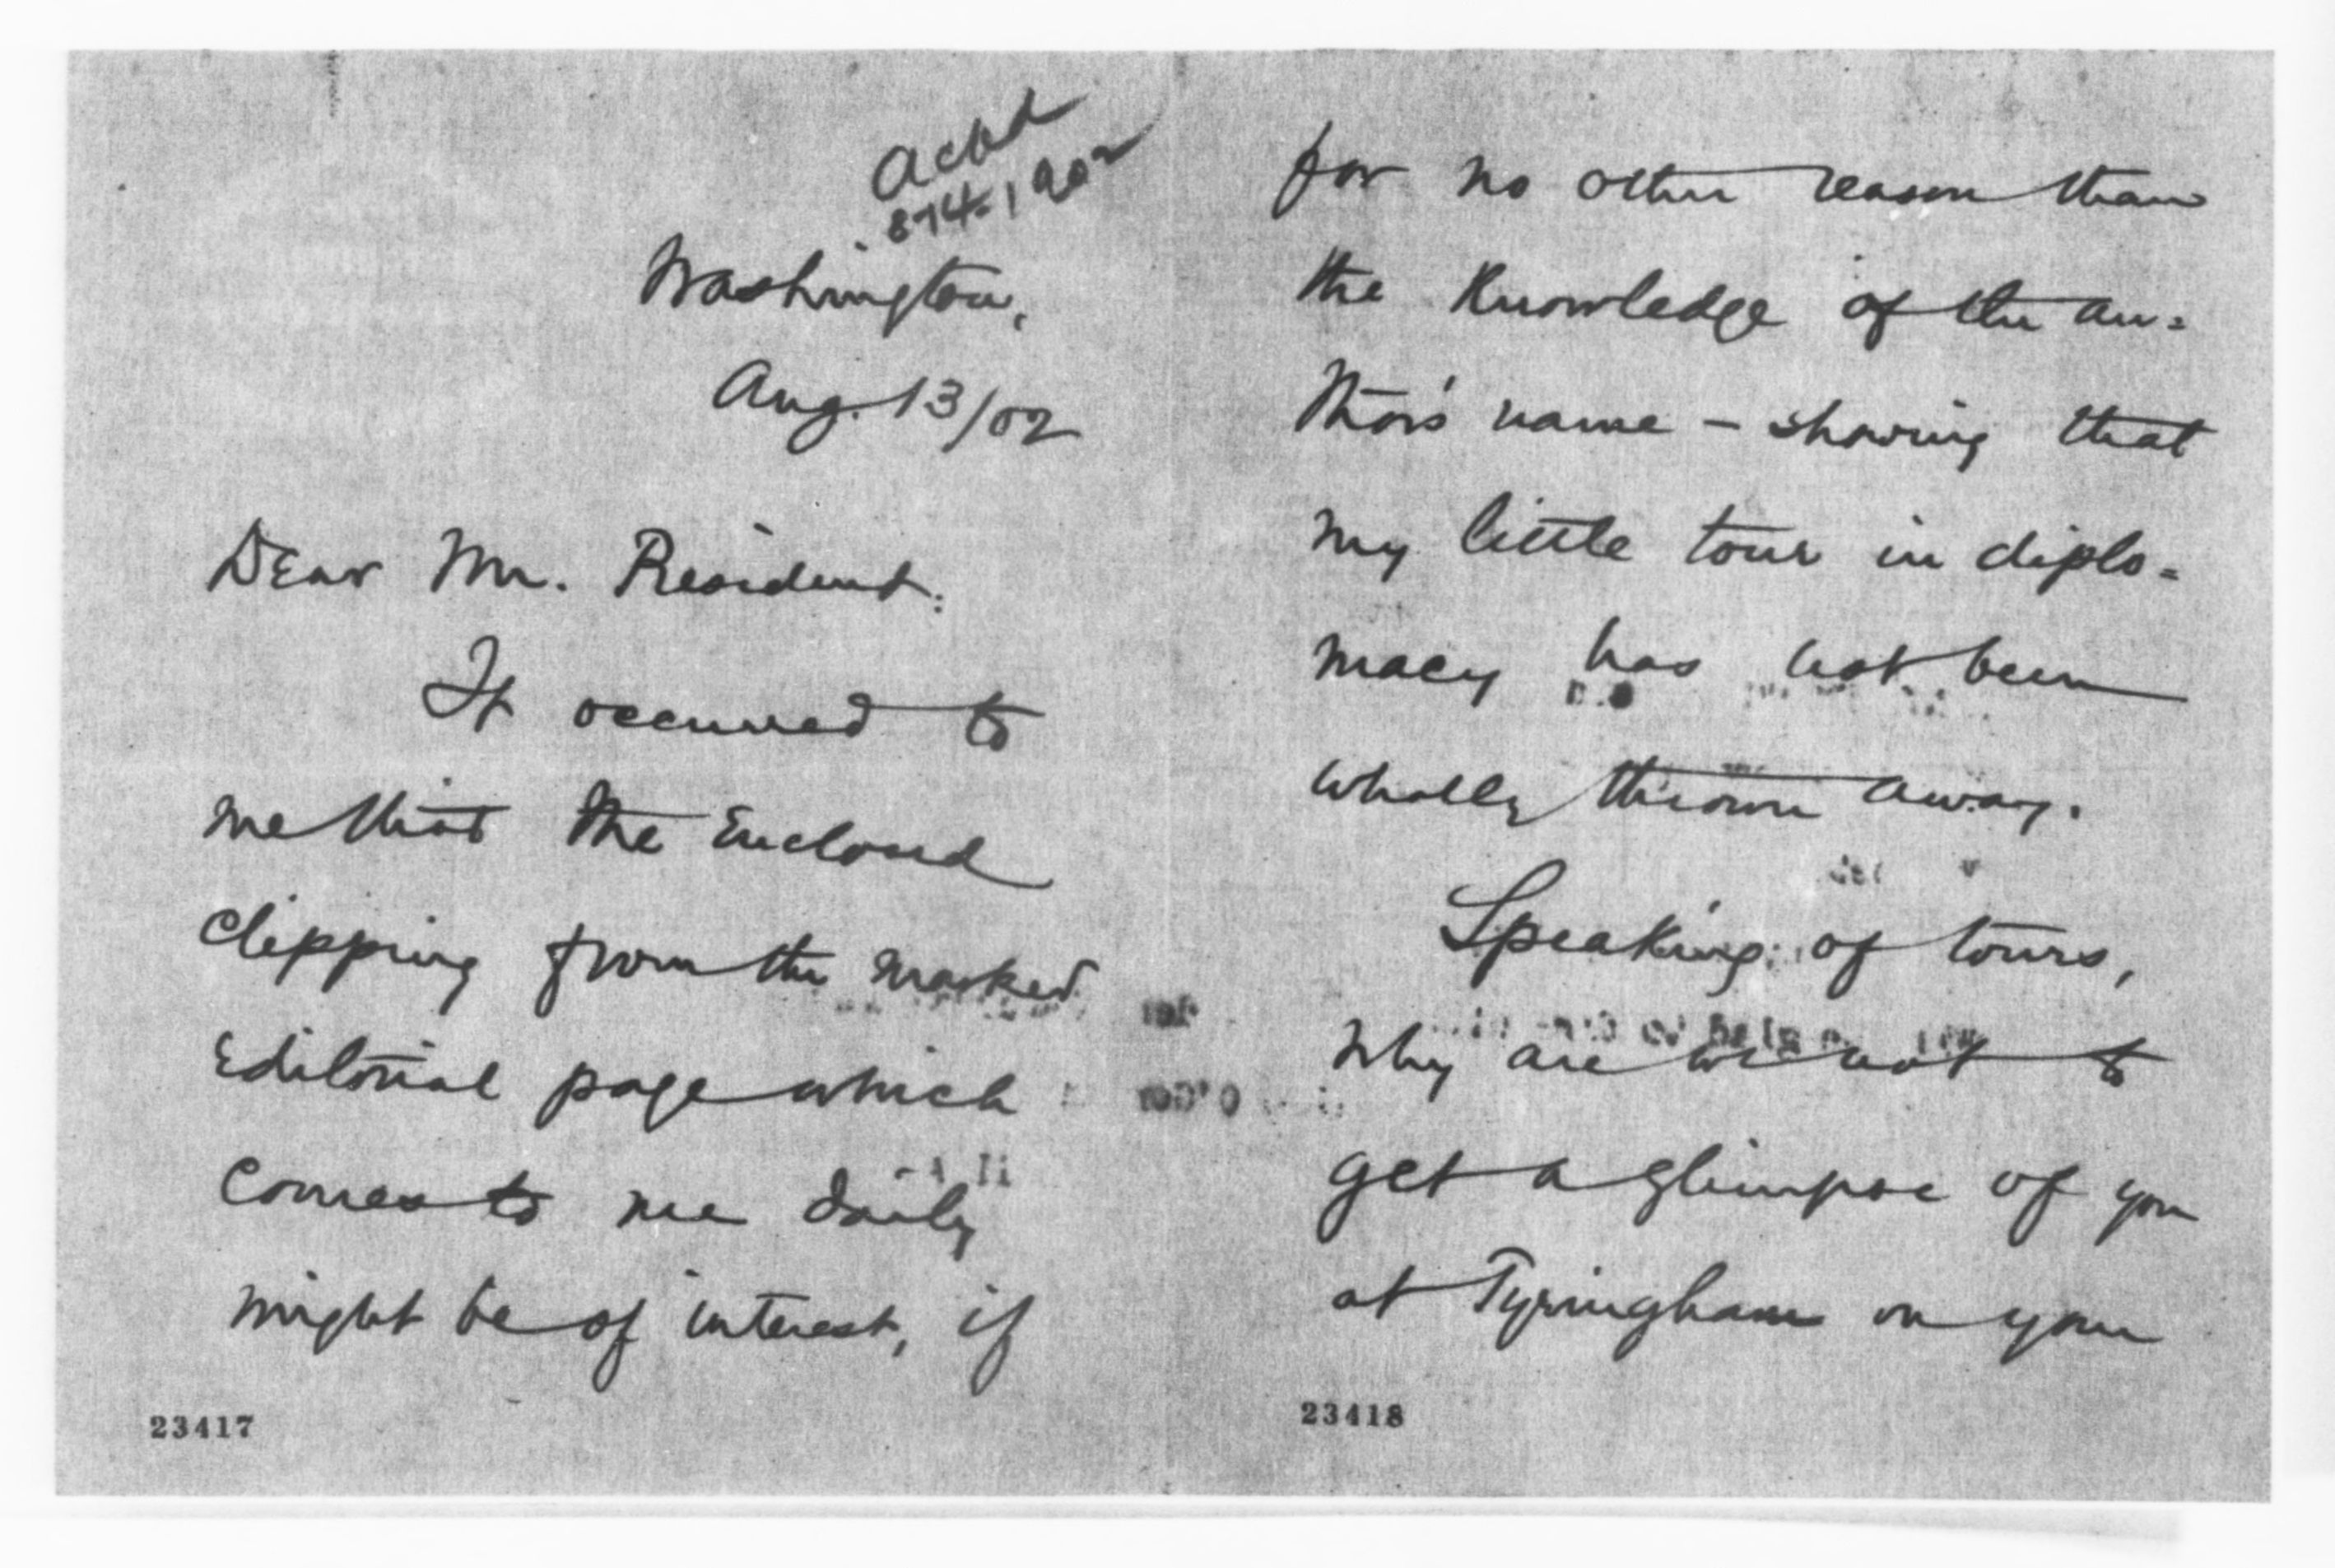 Ackd
8-14-1902
Washington,
Aug. 13/02
Dear Mr. President:
It occurred to
me that the enclosed
clipping from the marked
editorial page which
comes to me daily
might be of interest, if
23417
for no other reason than
the knowledge of the au=
thor's name – showing that
my little tour in diplo=
macy has not been
wholly thrown away.
Speaking of tours,
why are we not to
get a glimpse of you
at Tyringham on your
23418